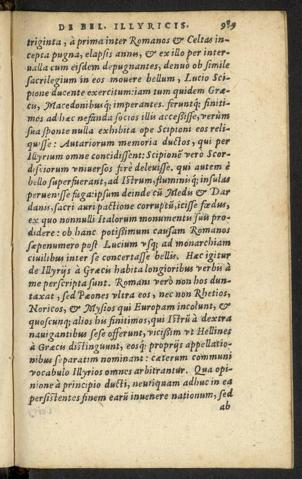 DE BEL. ILLYRICIS.
triginta, à prima inter Romanos & Celtas in-
cepta pugna, elapsis annis, & ex illo per inter-
ualla cum eisdem depugnantes, denuò ob simile
sacrilegium in eos mouere bellum, Lucio Scí-
pione ducente exercitum: iam tum quidem Græ-
cis, Macedonibusq; imperantes. feruntq; finiti-
mos ad hæc nefanda socios illis accessisse, verùm
sua sponte nulla exhibita ope Scipioni eos reli-
quisse: Autariorum memoria ducti, qui per
Illyrium omne concidissent: Scipionē verò Scor-
discorum vniuersos ferè deleuisse. qui autem è
bello superfuerant, ad Istrum, fluminisq; insulas
peruenisse fuga: ipsum deinde cū Medis & Dar
danis, sacri auri pactione corruptū, icisse fœdus,
ex quo nonnulli Italorum monumentis suis pro-
didere: ob hanc potissimum causam Romanos
sæpenumero post Lucium vsq; ad monarchiam
ciuilibus inter se concertasse bellis. Hæc igitur
de Illyrijs à Græcis habita longioribus verbis à
me perscripta sunt. Romani verò non hos dun-
taxat, sed Pæones vltra eos, nec non Rhetios,
Noricos, & Mysios qui Europam incolunt, &
quoscunq; alios his finitimos, qui Istrū à dextra
nauigantibus sese offerunt, vicissim vt Hellines
à Græcis distinguunt, eosq; proprijs appellatio-
nibus separatim nominant: cæterum communi
vocabulo Illyrios omnes arbitrantur. Qua opi-
nione à principio ducti, neutiquam adhuc in ea
persistentes finem earū inuenere nationum, sed
ab